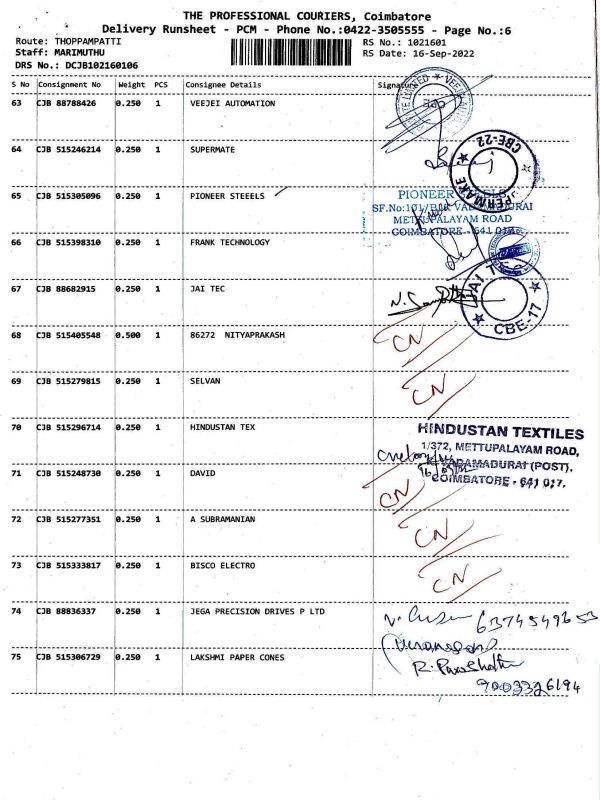 THE PROFESSIONAL COURIERS, Coimbatore
Delivery Runsheet - PCM - Phone No.:0422-3505555 - Page No.:6
Route: THOPPAMPATTI
Staff: MARIMUTHU RS No.: 1021601
DRS No.: DCJB102160106 RS Date: 16-Sep-2022
S No Consignment No Weight PCS Consignee Details Signature
63 CJB 88788426 0.250 1 VEEJEI AUTOMATION
CBE
64 CJB 515246214 0.250 1 SUPERMATE
CBE-22
65 CJB 515305096 0.250 1 PIONEER STEEELS
PIONEER
METTUPALAYAM ROAD
COIMBATORE - 641 017
66 CJB 515398310 0.250 1 FRANK TECHNOLOGY
67 CJB 88682915 0.250 1 JAI TEC
JAI TEC
CBE-17
68 CJB 515405548 0.500 1 86272 NITYAPRAKASH
CN
69 CJB 515279815 0.250 1 SELVAN
CN
70 CJB 515296714 0.250 1 HINDUSTAN TEX
HINDUSTAN TEXTILES
1/372, METTUPALAYAM ROAD,
K. VADAMADURAI (POST),
COIMBATORE - 641 017.
71 CJB 515248730 0.250 1 DAVID
CN
72 CJB 515277351 0.250 1 A SUBRAMANIAN
CN
73 CJB 515333817 0.250 1 BISCO ELECTRO
CN
74 CJB 88836337 0.250 1 JEGA PRECISION DRIVES P LTD
6374549653
75 CJB 515306729 0.250 1 LAKSHMI PAPER CONES
9003326194